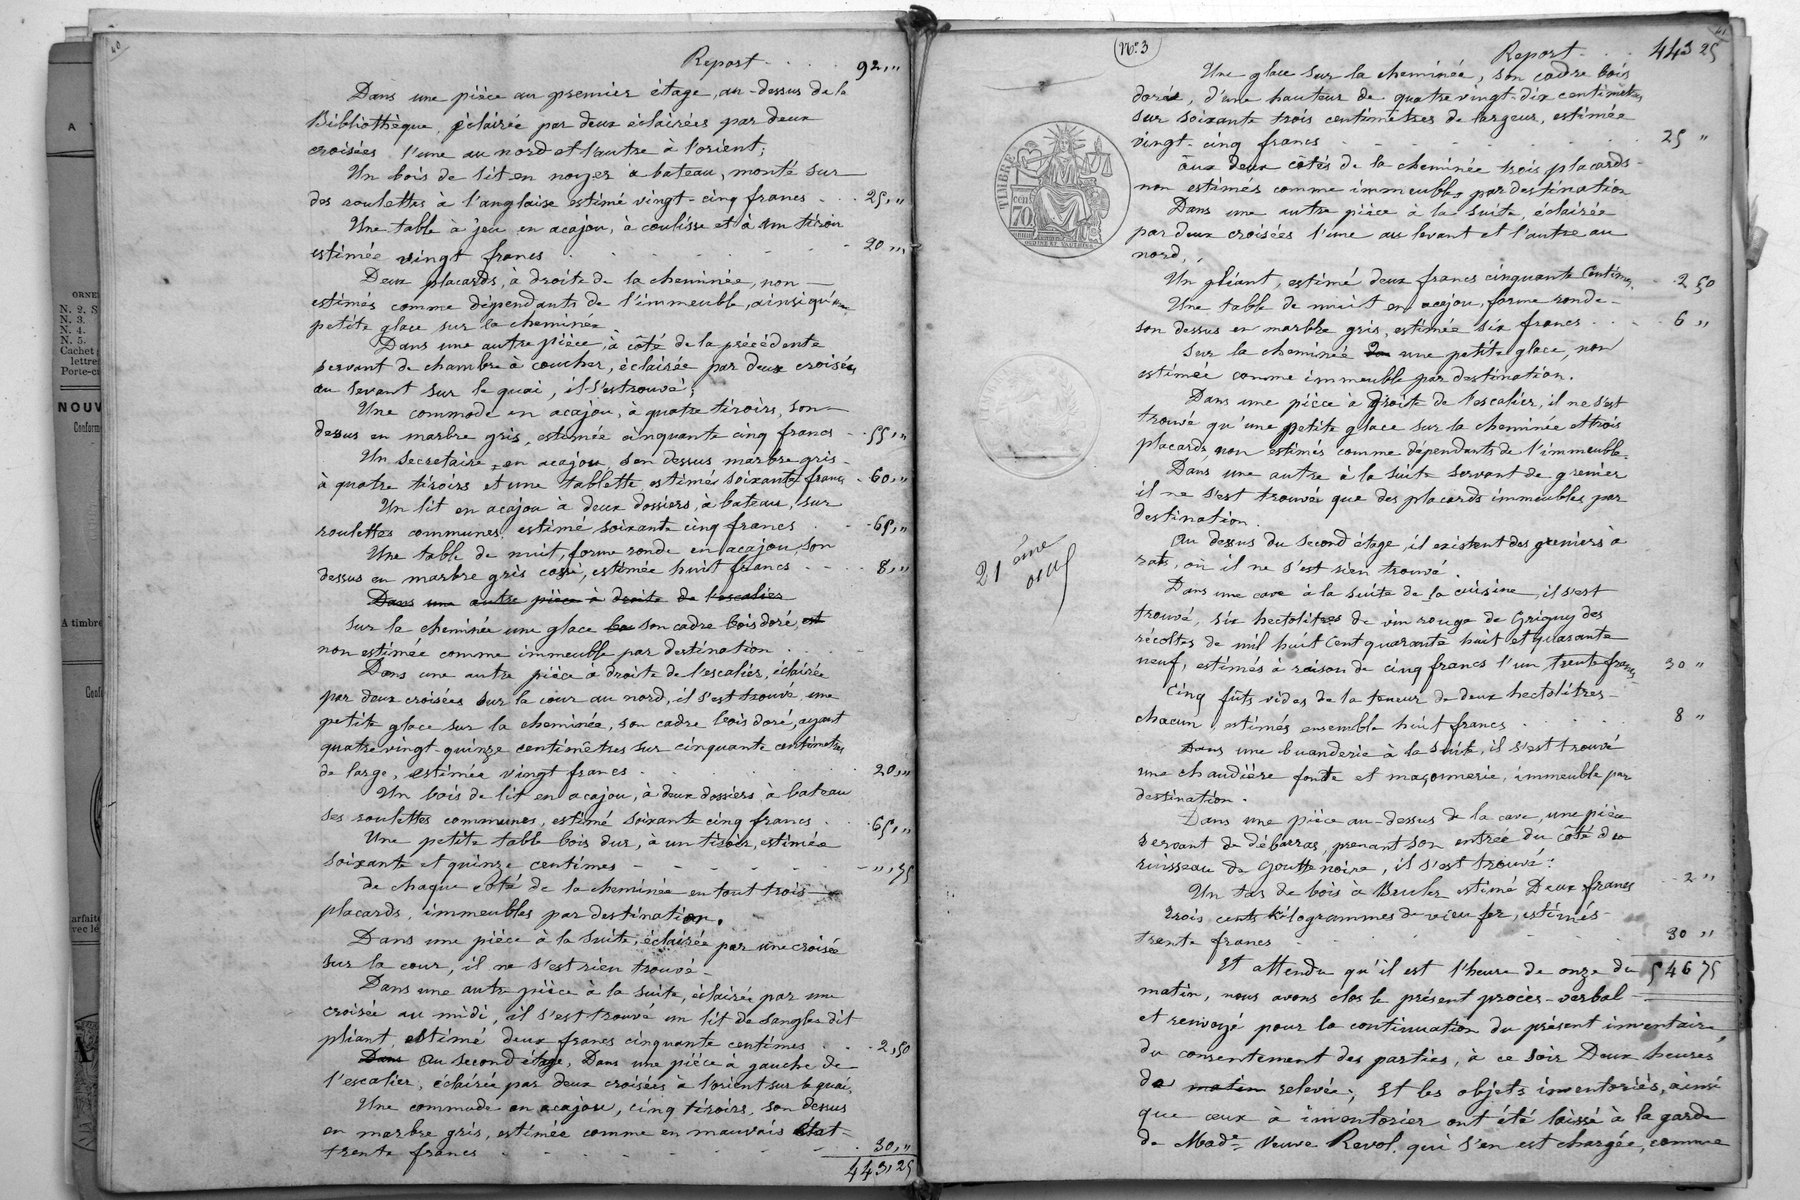 40
Report . . . . 92,"
Dans une pièce au premier étage, au-dessus de la
Bibliothèque, éclairée par deux éclairées par deux
croisées l'une au nord et l'autre à l'orient;
Un bois de lit en noyer a bateau, monté sur
des roulettes à l'anglaise estimé vingt-cinq francs . . 25,"
Une table à jeu en acajou, à coulisse et à un tiroir
estimée vingt francs . . . . . 20,"
Deux placards, à droite de la cheminée, non
estimés comme dépendants de l'immeuble, ainsi qu'une
petite glace sur la cheminée.
Dans une autre pièce, à côté de la précédente
servant de chambre à coucher, éclairée par deux croisées
au levant sur le quai, il s'est trouvé;
Une commode en acajou, à quatre tiroirs, son
dessus en marbre gris, estimée cinquante cinq francs . . 55,"
Un secretaire, en acajou, son dessus marbre gris
à quatre tiroirs et une tablette estimé soixante francs . 60,"
Un lit en acajou à deux dossiers, à bateau, sur
roulettes communes, estimé soixante cinq francs . . 65,"
Une table de nuit, forme ronde en acajou, son
dessus en marbre gris cassé, estimée huit francs . . . 8,"
Dans une autre pièce à droite de l'escalier
sur la cheminée une glace son cadre bois doré, est
non estimée comme immeuble par destination . . .
Dans une autre pièce à droite de l'escalier, éclairée
par deux croisées sur la cour au nord, il s'est trouvé une
petite glace sur la cheminée, son cadre bois doré, ayant
quatre vingt-quinze centimètres sur cinquante centimètres
de large, estimée vingt francs . . . . . 20,"
Un bois de lit en acajou, à deux dossiers à bateau
ses roulettes communes, estimé soixante cinq francs . . 65,"
Une petite table bois dur, à un tiroir, estimée
soixante et quinze centimes - - - - - ",75
de chaque côté de la cheminée en tout trois
placards, immeubles par destination.
Dans une pièce à la suite, éclairée par une croisée
sur la cour, il ne s'est rien trouvé -
Dans une autre pièce à la suite, éclairée par une
croisée au midi, il s'est trouvé un lit de sangles dit
pliant, estimé deux francs cinquante centimes . . . 2,50
Dans Au second étage, Dans une pièce à gauche de
l'escalier, éclairée par deux croisées à l'orient sur le quai,
Une commode en acajou, cinq tiroirs, son dessus
en marbre gris, estimée comme en mauvais état
trente francs - - - - - 30,"
443,25
N° 3
41
Report . . . 443 25
Une glace sur la cheminée, son cadre bois
doré, d'une hauteur de quatre vingt-dix centimètres
sur soixante trois centimètres de largeur, estimée
vingt-cinq francs . . . . . . 25 "
aux deux côtés de la cheminée trois placards
non estimés comme immeubles par destination
Dans une autre pièce à la suite, éclairée
par deux croisées l'une au levant et l'autre au
nord,
Un pliant, estimé deux francs cinquante centimes. . 2 50
Une table de nuit en acajou, forme ronde -
son dessus en marbre gris, estimée six francs . . . 6 "
Sur la cheminée une petite glace, non
estimée comme immeuble par destination.
Dans une pièce à droite de l'escalier, il ne s'est
trouvé qu'une petite glace sur la cheminée et trois
placards, non estimés comme dépendants de l'immeuble.
Dans une autre à la suite servant de grenier
il ne s'est trouvé que des placards immeubles par
destination.
Au dessus du second étage, il existent des greniers à
rats, où il ne s'est rien trouvé.
Dans une cave à la suite de la cuisine, il s'est
trouvé, six hectolitres de vin rouge de Grigny des
récoltes de mil huit cent quarante huit et quarante
neuf, estimés à raison de cinq francs l'un, trente francs 30 "
Cinq fûts vides de la teneur de deux hectolitres -
chacun, estimés ensemble huit francs . . . . 8 "
Dans une buanderie à la suite, il s'est trouvé
une chaudière fonte et maçonnerie, immeuble par
destination.
Dans une pièce au-dessus de la cave, une pièce
servant de débarras, prenant son entrée du côté du
ruisseau de Gouttenoire, il s'est trouvé:
Un tas de bois à Bruler estimé Deux francs . 2 "
Trois cents kilogrammes de vieu fer, estimés
trente francs . . . . . . 30 "
Et attendu qu'il est l'heure de onze du 546 75
matin, nous avons clos le présent procès-verbal
et renvoyé pour la continuation du présent inventaire
du consentement des parties, à ce soir Deux heures
de matin relevée; Et les objets inventoriés, ainsi
que ceux à inventorier ont été laissé à la garde
de Made Veuve Revol, qui s'en est chargée, comme
TIMBRE
70
21 ème
ORNE
N. 2. S
N. 3.
N. 4.
N. 5.
Cachet
lettre
NOUV
A timbre